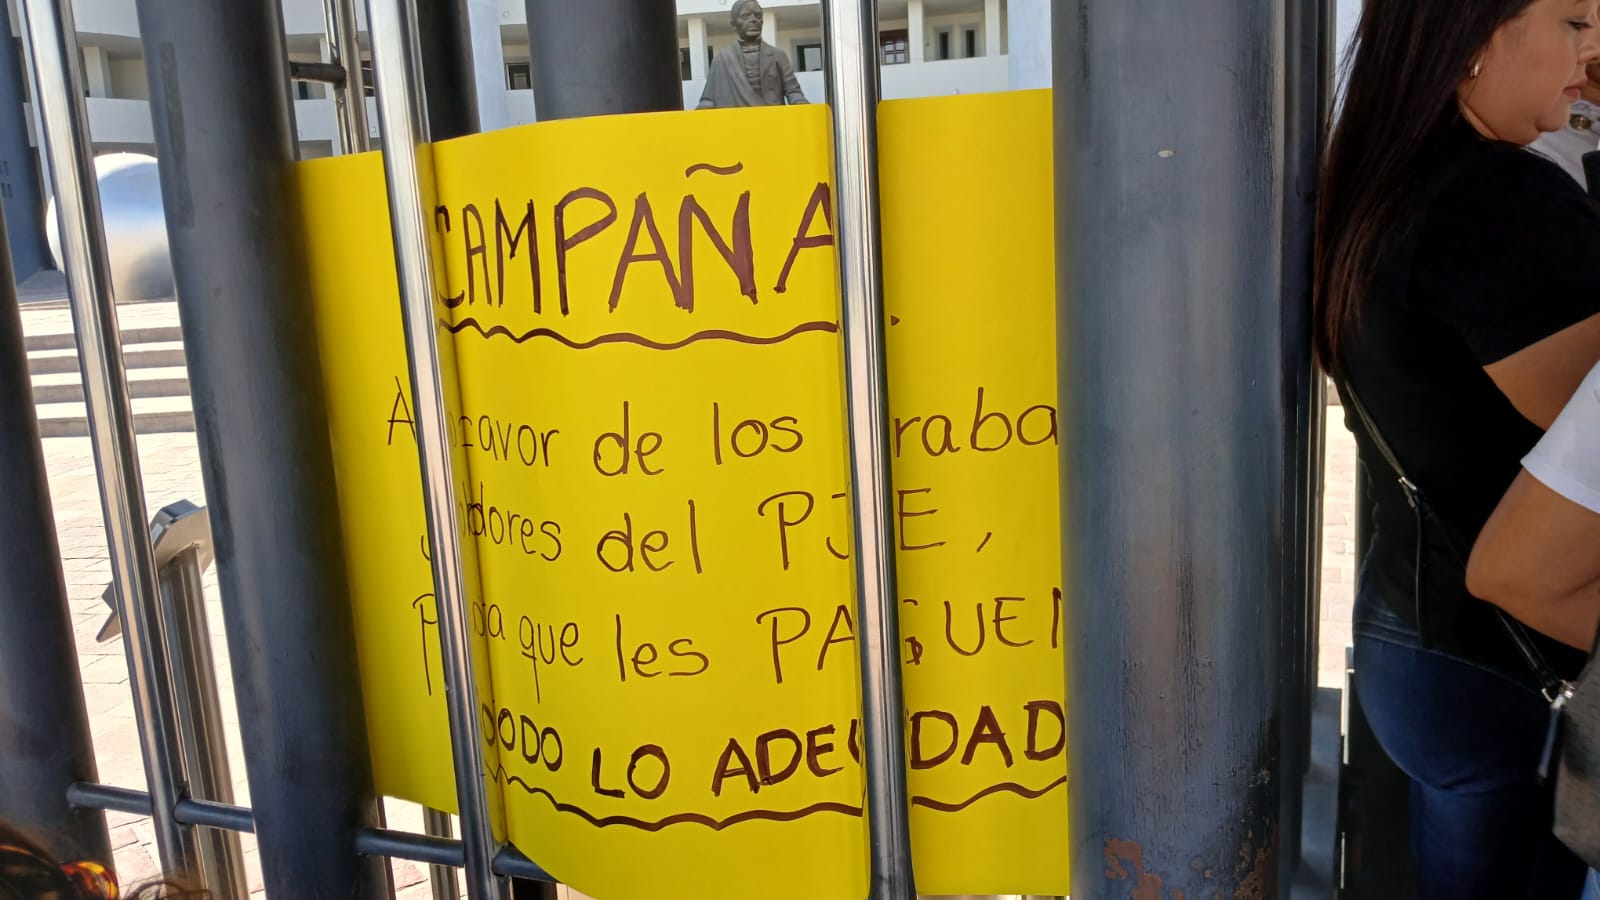 CAMPAÑA.
A favor de los traba
jadores del PJE,
Para que les PAGUEN
TODO LO ADEUDADO